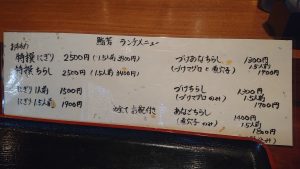 鮨若 ランチメニュー
おすすめ
特撰 にぎり 2500円 (1.5人前 3400円)
特撰 ちらし 2500円 (1.5人前 3400円)
にぎり 1人前 1500円
にぎり 1.5人前 1900円
全て お椀付
づけあなちらし 1300円
(づけマグロと煮穴子) 1.5人前
1900円
づけちらし 1300円
(づけマグロのみ) 1.5人前
1900円
あなごちらし
(煮穴子のみ) 1.5人前